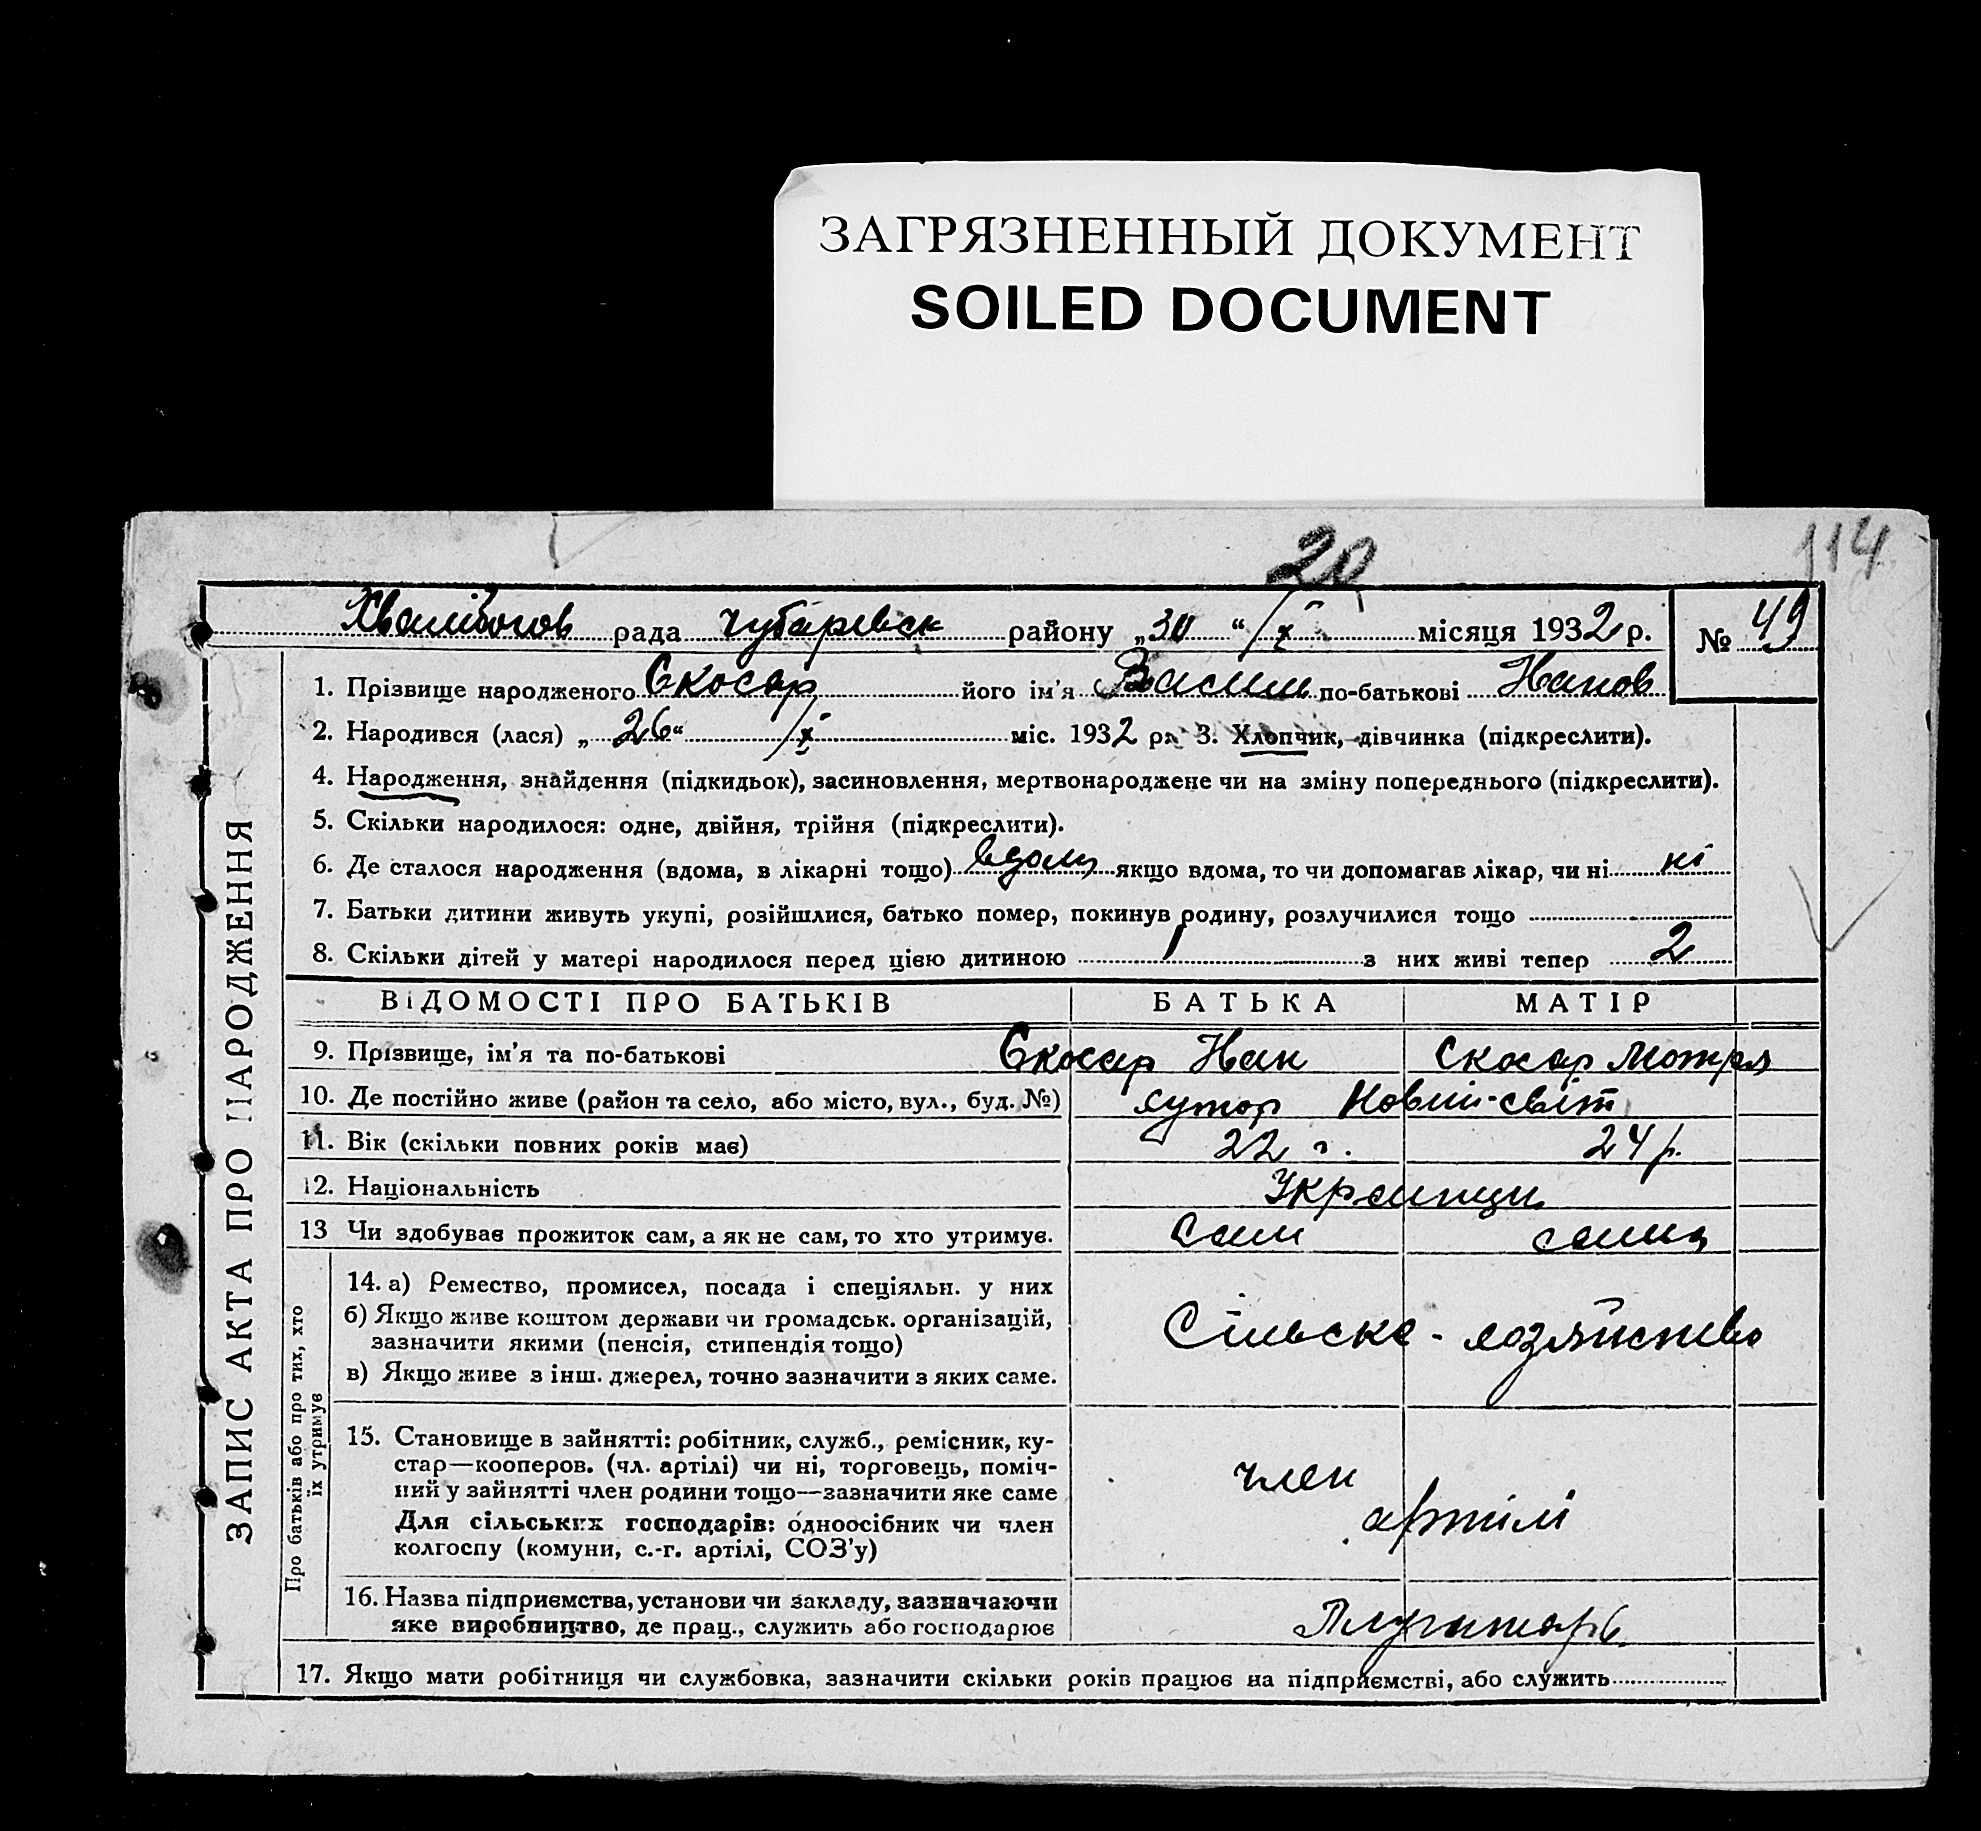 ЗАГРЯЗНЕННЫЙ ДОКУМЕНТ
SOILED DOCUMENT
20
114
Хвалібогов рада Чубаревск району „30“ /X 1932 р. місяця № 49
1. Прізвище народженого Скосар його ім'я Василь по-батькові Иванов
2. Народився (лася) „26“ /X міс. 1932 р. 3. Хлопчик, дівчинка (підкреслити).
4. Народження, знайдення (підкидьок), засиновлення, мертвонароджене чи на зміну попереднього (підкреслити).
5. Скільки народилося: одне, двійня, трійня (підкреслити).
6. Де сталося народження (вдома, в лікарні тощо) вдома якщо вдома, то чи допомагав лікар, чи ні ні
7. Батьки дитини живуть укупі, розійшлися, батько помер, покинув родину, розлучилися тощо
8. Скільки дітей у матері народилося перед цією дитиною 1 з них живі тепер 2
ВІДОМОСТІ ПРО БАТЬКІВ БАТЬКА МАТІР
9. Прізвище, ім'я та по-батькові Скосар Иван Скосар Мотря
10. Де постійно живе (район та село, або місто, вул., буд. №) хутор Новий-світ
11. Вік (скільки повних років має) 22 р. 24 р.
12. Національність Українци
13 Чи здобував прожиток сам, а як не сам, то хто утримує. Сам сама
14. а) Ремество, промисел, посада і спеціяльн. у них
б) Якщо живе коштом держави чи громадськ. організацій,
зазначити якими (пенсія, стипендія тощо)
в) Якщо живе з інш. джерел, точно зазначити з яких саме.
Сільске-хозяйство
15. Становище в зайнятті: робітник, служб., ремісник, ку-
стар—кооперов. (чл. артілі) чи ні, торговець, поміч-
ний у зайнятті член родини тощо—зазначити яке саме
Для сільських господарів: одноосібник чи член
колгоспу (комуни, с.-г. артілі, СОЗ'у)
член
артілі
16. Назва підприємства, установи чи закладу, зазначаючи
яке виробництво, де прац., служить або господарює
17. Якщо мати робітниця чи службовка, зазначити скільки років працює на підприємстві, або служить
ЗАПИС АКТА ПРО НАРОДЖЕННЯ
Про батьків або про тих, хто
їх утримує